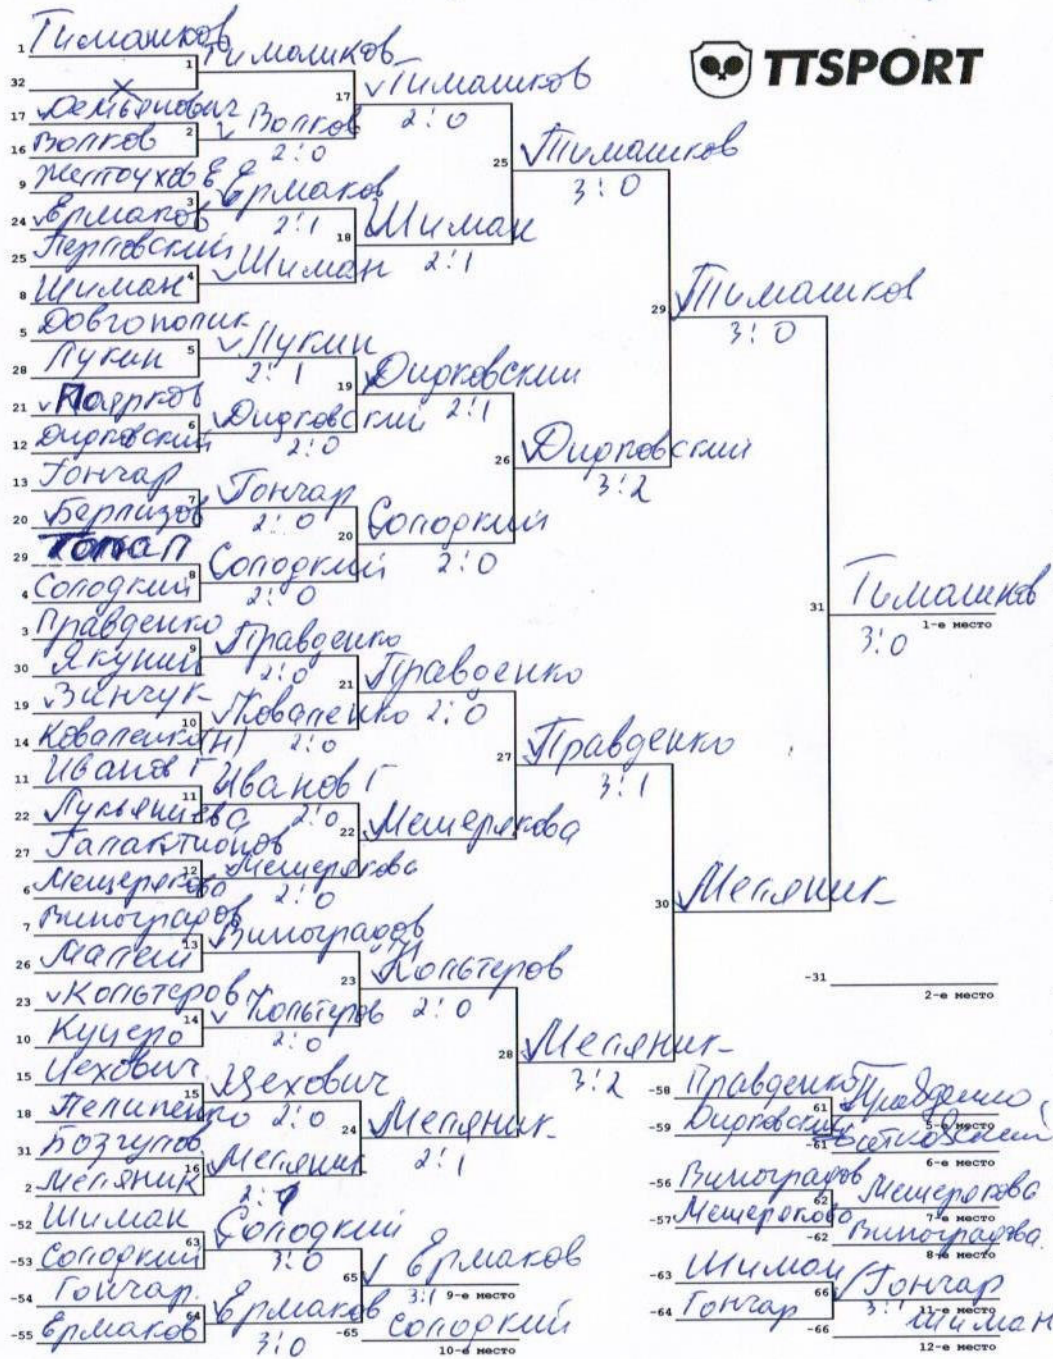 TTSPORT
1 Тимашков
32 X
17 Демьянович
16 Волков
9 Желтоухов Е
24 Ермаков
25 Перловский
8 Шиман
5 Довгополик
28 Лукин
21 Поярков
12 Дидковский
13 Гончар
20 Берлизов
29 Топал
4 Солодкий
3 Правденко
30 Якунин
19 Зинчук
14 Коваленко (Н)
11 Иванов Г
22 Лукьянцева
27 Галактионов
6 Мещерякова
7 Виноградов
26 Малеш
23 Кольтеров
10 Куцеро
15 Цехович
18 Пелипенко
31 Бозгулов
2 Меляник
-52 Шиман
-53 Солодкий
-54 Гончар
-55 Ермаков
1 Тимашков
2 Волков
2:0
3 Ермаков
2:1
4 Шиман
5 Лукин
2:1
6 Дидковский
2:0
7 Гончар
2:0
8 Солодкий
2:0
9 Правденко
2:0
10 Коваленко
2:0
11 Иванов Г
2:0
12 Мещерякова
2:0
13 Виноградов
14 Кольтеров
2:0
15 Цехович
2:0
16 Меляник
63 Солодкий
3:0
64 Ермаков
3:0
17 Тимашков
2:0
18 Шиман
2:1
19 Дидковский
2:1
20 Солодкий
2:0
21 Правденко
2:0
22 Мещерякова
23 Кольтеров
2:0
24 Меляник
2:1
65 Ермаков
3:1 9-е место
-65 Солодкий
10-е место
25 Тимашков
3:0
26 Дидковский
3:2
27 Правденко
3:1
28 Меляник
3:2
29 Тимашков
3:0
30 Меляник
31 Тимашков
3:0 1-е место
-31
2-е место
-58 Правденко
-59 Дидковский
61 Правденко
5-е место
-61
6-е место
-56 Виноградов
-57 Мещерякова
62 Мещерякова
7-е место
-62 Виноградова
8-е место
-63 Шиман
-64 Гончар
66 Гончар
3:1 11-е место
-66 Шиман
12-е место